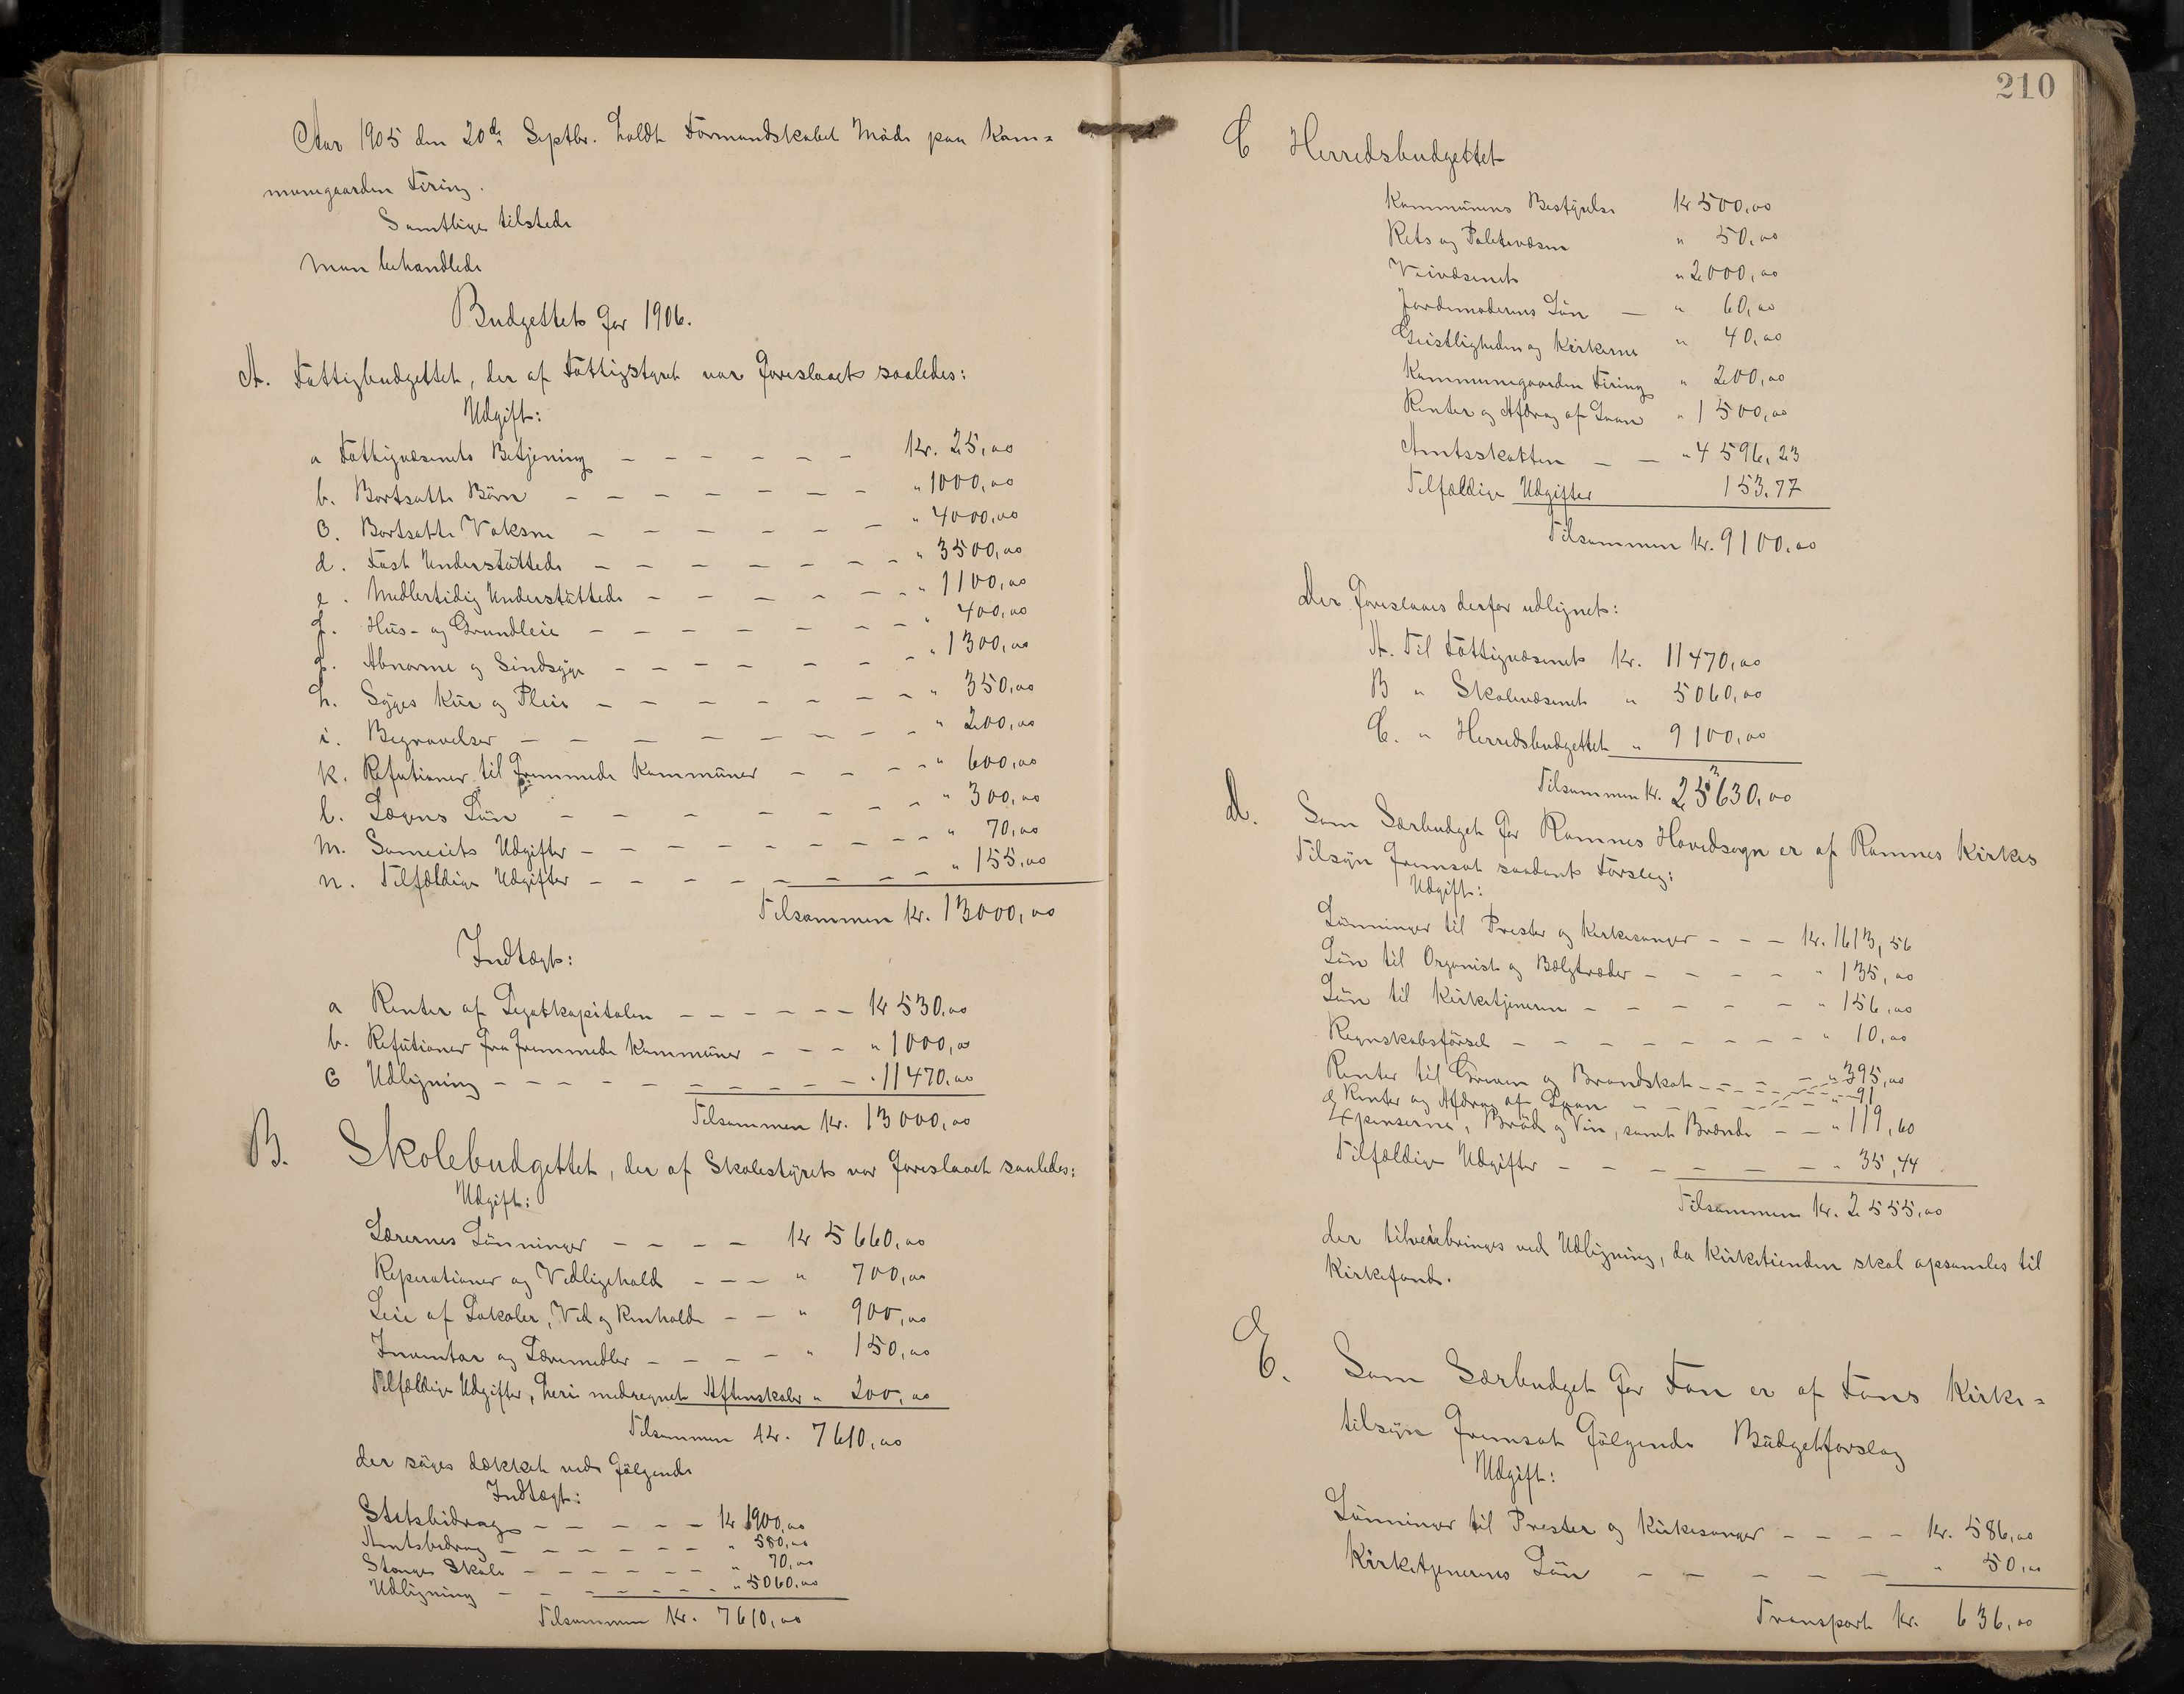 Aar 1905 den 20de Septbr. holdt Formandskabet Möde paa Kom=
munegaarden Firing.
Samtlige tilstede
Man behandlede
Budgettet for 1906.
A. Fattigbudgettet, der af Fattigstyret var foreslaaet saaledes:
Udgift:
a Fattigvæsenets Betjening – – – – – – Kr. 25,00
b. Bortsatte Börn – – – – – – – " 1000,00
c. Bortsatte Voksne – – – – – – " 4000,00
d. Fast Understöttede – – – – – – – " 3500,00
e. Medlertidig Understöttede – – – – – " 1100,00
f. Hus- og Grundleie – – – – – – – " 400,00
g. Abnorme og Sindsyge – – – – – – " 1300,00
h. Syges Kur og Pleie – – – – – – – " 350,00
i. Begravelser – – – – – – – – " 200,00
k. Refutioner til fremmede Kommuner – – – – " 600,00
l. Lægens Lön – – – – – – – " 300,00
m. Sameiets Udgifter – – – – – – – – " 70,00
n. Tilfældige Udgifter – – – – – – – – " 155,00
Tilsammen Kr. 13000,00
Indtægt:
a Renter af Legatkapitalen – – – – – – Kr 530,00
b. Refutioner fra fremmede Kommuner – – – " 1000,00
c Udligning – – – – – – – – – – " 11470,00
Tilsammen Kr. 13000,00
B. Skolebudgettet, der af Skolestyret var foreslaaet saaledes:
Udgift:
Lærernes Lönninger – – – – Kr 5660,00
Reperationer og Vedligehold – – – " 700,00
Leie af Lokaler, Ved og Renhold – – " 900,00
Inventar og Læremidler – – – – " 150,00
Tilfældige Udgifter, heri medregnet Aftenskoler " 200,00
Tilsammen Kr. 7610,00
der söges dækket ved fölgende
Indtægt:
Statsbidrag – – – – – Kr 1900,00
Amtsbidrag – – – – – – " 580,00
Stanges Skole – – – – – – " 70,00
Udligning – – – – – – – " 5060,00
Tilsammen Kr. 7610,00
210
C Herredsbudgettet
Kommunens Bestyrelse Kr 500,00
Rets og Politivæsen " 50,00
Veivæsenet " 2000,00
Jordemoderens Lön – " 60,00
Geistligheden og Kirkerne " 40,00
Kommunegaarden Firing " 200,00
Renter og Afdrag af Laan " 1500,00
Amtsskatten – – " 4596,23
Tilfældige Udgifter 153,77
Tilsammen Kr. 9100,00
Der foreslaaes derfor udlignet:
A. Til Fattigvæsenet Kr. 11470,00
B " Skolevæsenet " 5060,00
C. " Herredsbudgettet " 9100,00
Tilsammen Kr. 25630,00
d. Som Særbudget for Ramnes Hovedsogn er af Ramnes Kirkes
Tilsyn fremsat saadant Forslag:
Udgift:
Lönninger til Prester og Kirkesanger – – – Kr. 1613,56
Lön til Organist og Bælgtræder – – – – " 135,00
Lön til Kirketjeneren – – – – – " 156,00
Regnskabsförsel – – – – – – – – " 10,00
Renter til Enken og Brandskat – – – – – " 395,00
og Renter og Afdrag af Laan – – – – – " 91
Expenserne, Bröd og Vin, samt Brænde – – " 119,60
Tilfældige Udgifter – – – – – – – " 35,44
Tilsammen Kr. 2555,00
der tilveiebringes ved Udligning, da Kirketienden skal opsamles til
Kirkefond.
E. Som Særbudget for Fon er af Fons Kirke=
tilsyn fremsat fölgende Budgetforslag
Udgift:
Lönninger til Prester og Kirkesanger – – – – Kr. 586,00
Kirketjenerens Lön – – – – – – " 50,00
Transport Kr. 636,00